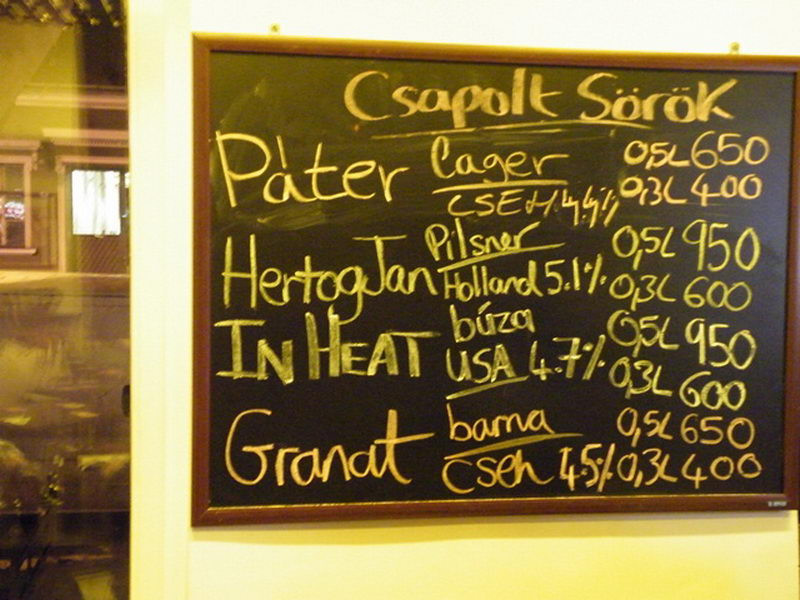 Csapolt Sörök
Páter Lager 0,5L 650
CSEH 4,4% 0,3L 400
Hertog Jan Pilsner 0,5L 950
Holland 5.1% 0,3L 600
IN HEAT búza 0,5L 950
USA 4.7% 0,3L 600
Granat barna 0,5L 650
Cseh 4.5% 0,3L 400